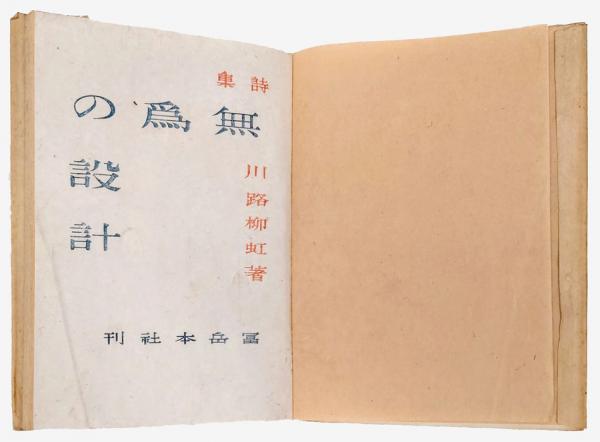 詩集
無爲の
設計
川路柳虹著
冨岳本社刊